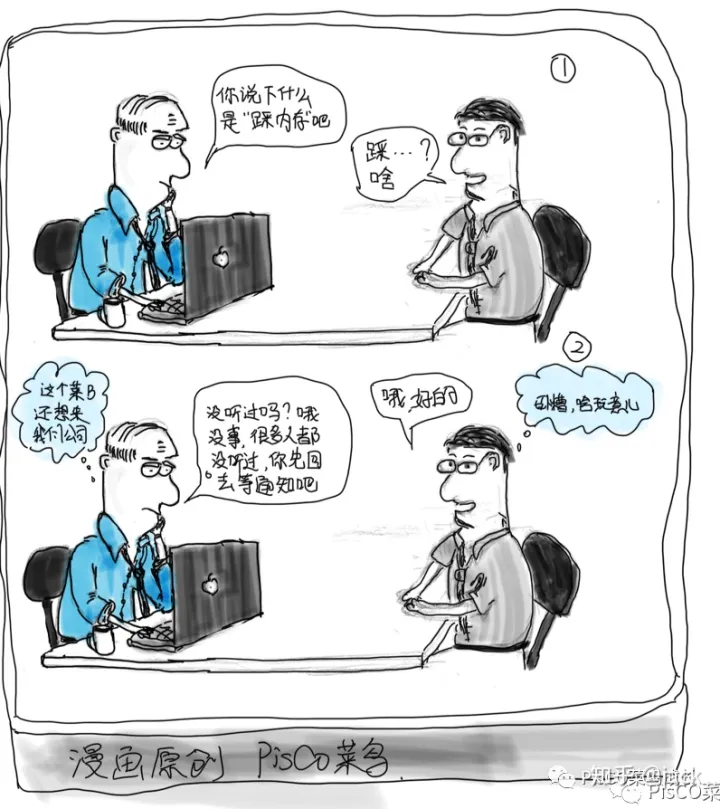 ①
你说下什么
是"踩内存"吧
踩…?
啥
②
这个菜B
还想来
我们公司
没听过吗?哦
没事,很多人都
没听过,你先回
去等通知吧
哦,好的
卧槽,啥玩意儿
漫画原创 PisCO菜鸟
知乎 @jack
PisCO菜